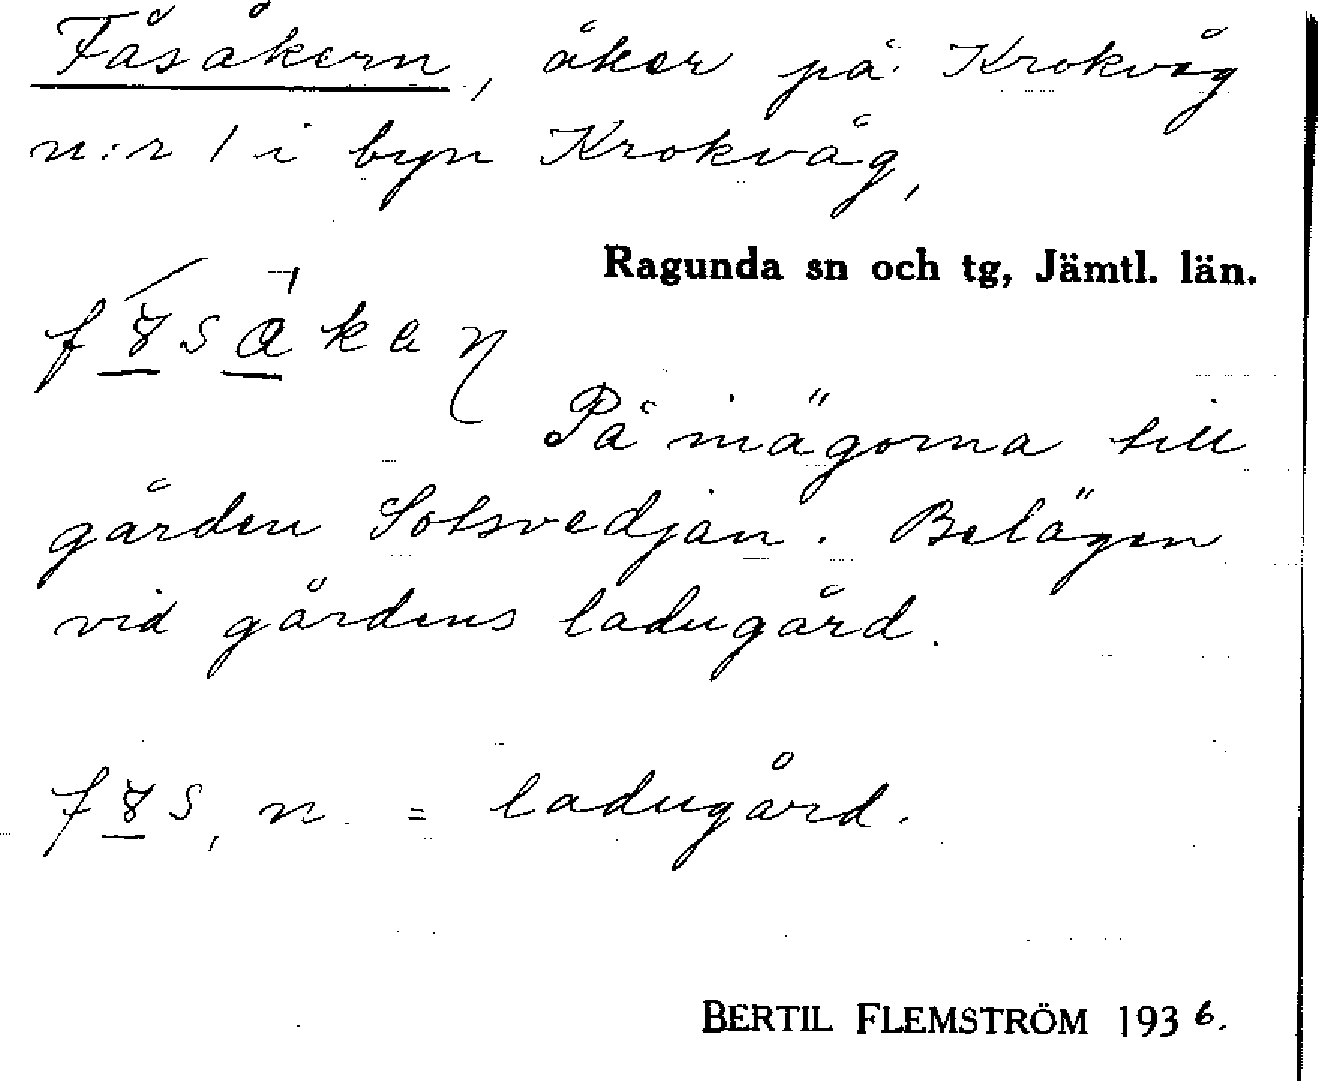 Fåsåkern, åker på Krokvåg
n:r 1 i byn Krokvåg,
Ragunda sn och tg, Jämtl. län.
På mägorna till
gården Solsvedjan. Belägen
vid gårdens ladugård.
n = ladugård.
BERTIL FLEMSTRÖM 1936.